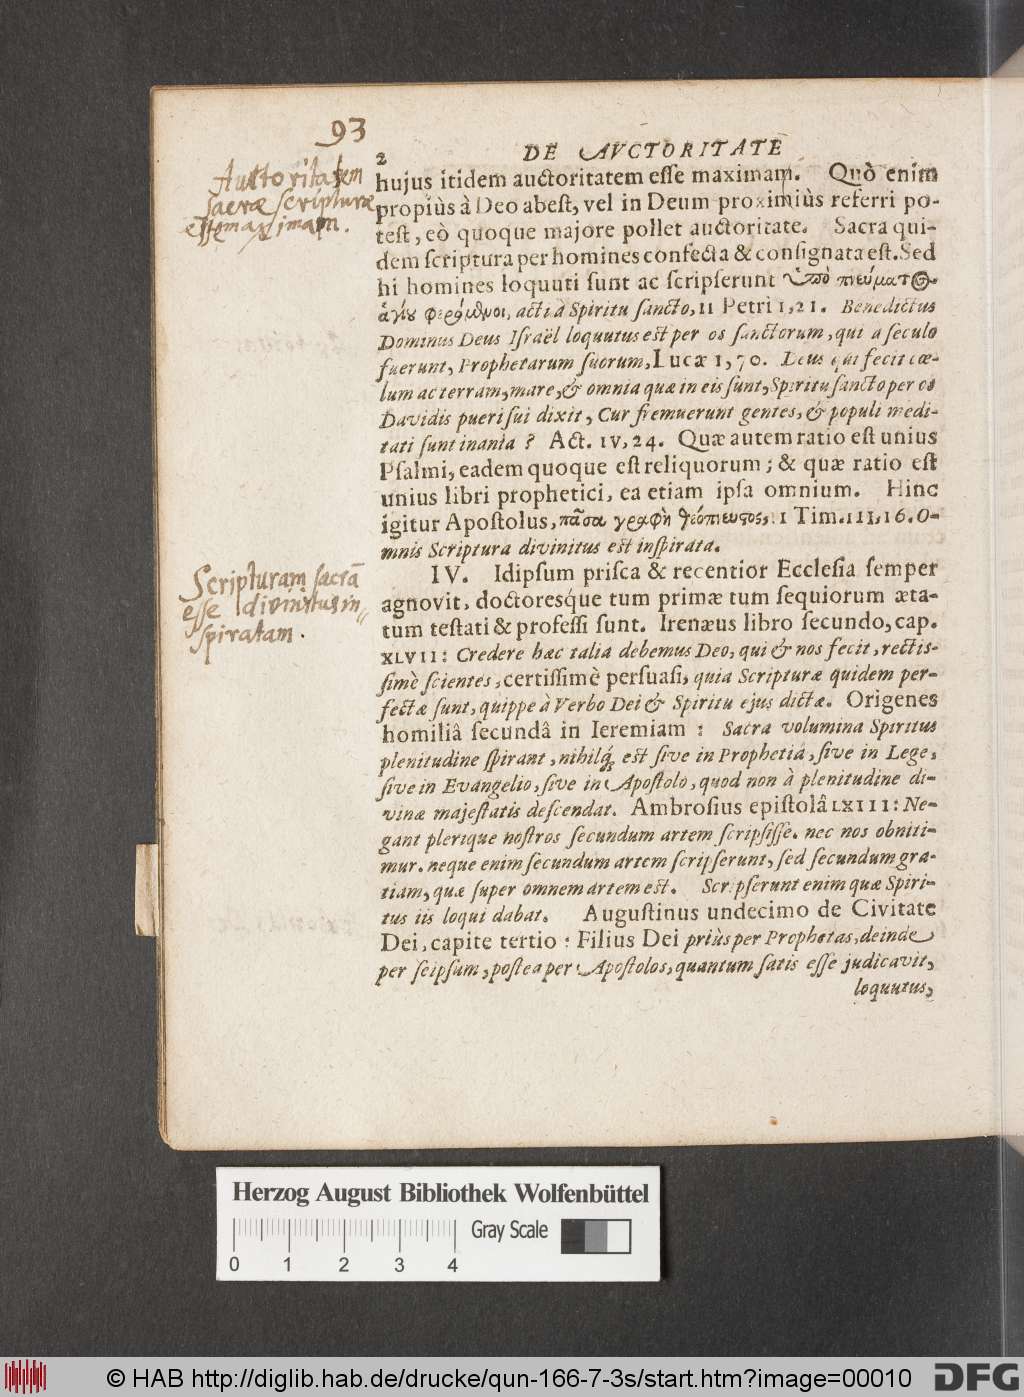 93
2 DE AVCTORITATE
Auctoritatem
sacræ scripturæ
esse maximam.
hujus itidem auctoritatem esse maximam. Quò enim
propiùs à Deo abest, vel in Deum proximiùs referri po-
test, eò quoque majore pollet auctoritate. Sacra qui-
dem scriptura per homines confecta & consignata est. Sed
hi homines loquuti sunt ac scripserunt ὑπὸ πνεύματος
ἁγίου φερόμενοι, acti à Spiritu sancto, II Petri 1, 21. Benedictus
Dominus Deus Israël loquutus est per os sanctorum, qui a seculo
fuerunt, Prophetarum suorum, Lucæ 1, 70. Deus qui fecit cœ-
lum ac terram, mare, & omnia quæ in eis sunt, Spiritu sancto per os
Davidis pueri sui dixit, Cur fremuerunt gentes, & populi medi-
tati sunt inania? Act. IV, 24. Quæ autem ratio est unius
Psalmi, eadem quoque est reliquorum; & quæ ratio est
unius libri prophetici, ea etiam ipsa omnium. Hinc
igitur Apostolus, πᾶσα γραφὴ θεόπνευστος, 1 Tim. III, 16. O-
mnis Scriptura divinitus est inspirata.
Scripturam sacrā
esse divinitus in=
spiratam.
IV. Idipsum prisca & recentior Ecclesia semper
agnovit, doctoresque tum primæ tum sequiorum æta-
tum testati & professi sunt. Irenæus libro secundo, cap.
XLVII: Credere hæc talia debemus Deo, qui & nos fecit, rectis-
simè scientes, certissimè persuasi, quia Scripturæ quidem per-
fectæ sunt, quippe à Verbo Dei & Spiritu ejus dictæ. Origenes
homiliâ secundâ in Ieremiam: Sacra volumina Spiritus
plenitudine spirant, nihilq́; est sive in Prophetiâ, sive in Lege,
sive in Evangelio, sive in Apostolo, quod non à plenitudine di-
vinæ majestatis descendat. Ambrosius epistolâ LXIII: Ne-
gant plerique nostros secundum artem scripsisse. nec nos obniti-
mur. neque enim secundum artem scripserunt, sed secundum gra-
tiam, quæ super omnem artem est. Scripserunt enim quæ Spiri-
tus iis loqui dabat. Augustinus undecimo de Civitate
Dei, capite tertio: Filius Dei priùs per Prophetas, deinde
per seipsum, postea per Apostolos, quantum satis esse judicavit,
loquutus,
Herzog August Bibliothek Wolfenbüttel
Gray Scale
0 1 2 3 4
© HAB http://diglib.hab.de/drucke/qun-166-7-3s/start.htm?image=00010
DFG